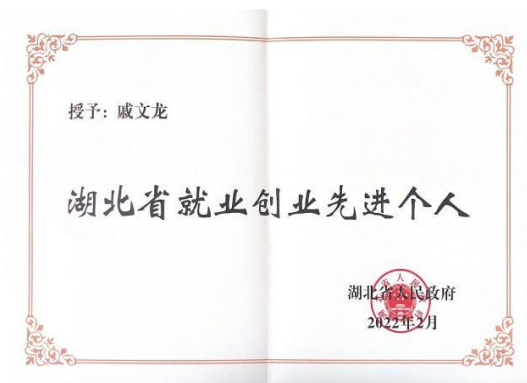 授予：戚文龙
湖北省就业创业先进个人
湖北省人民政府
2022年2月